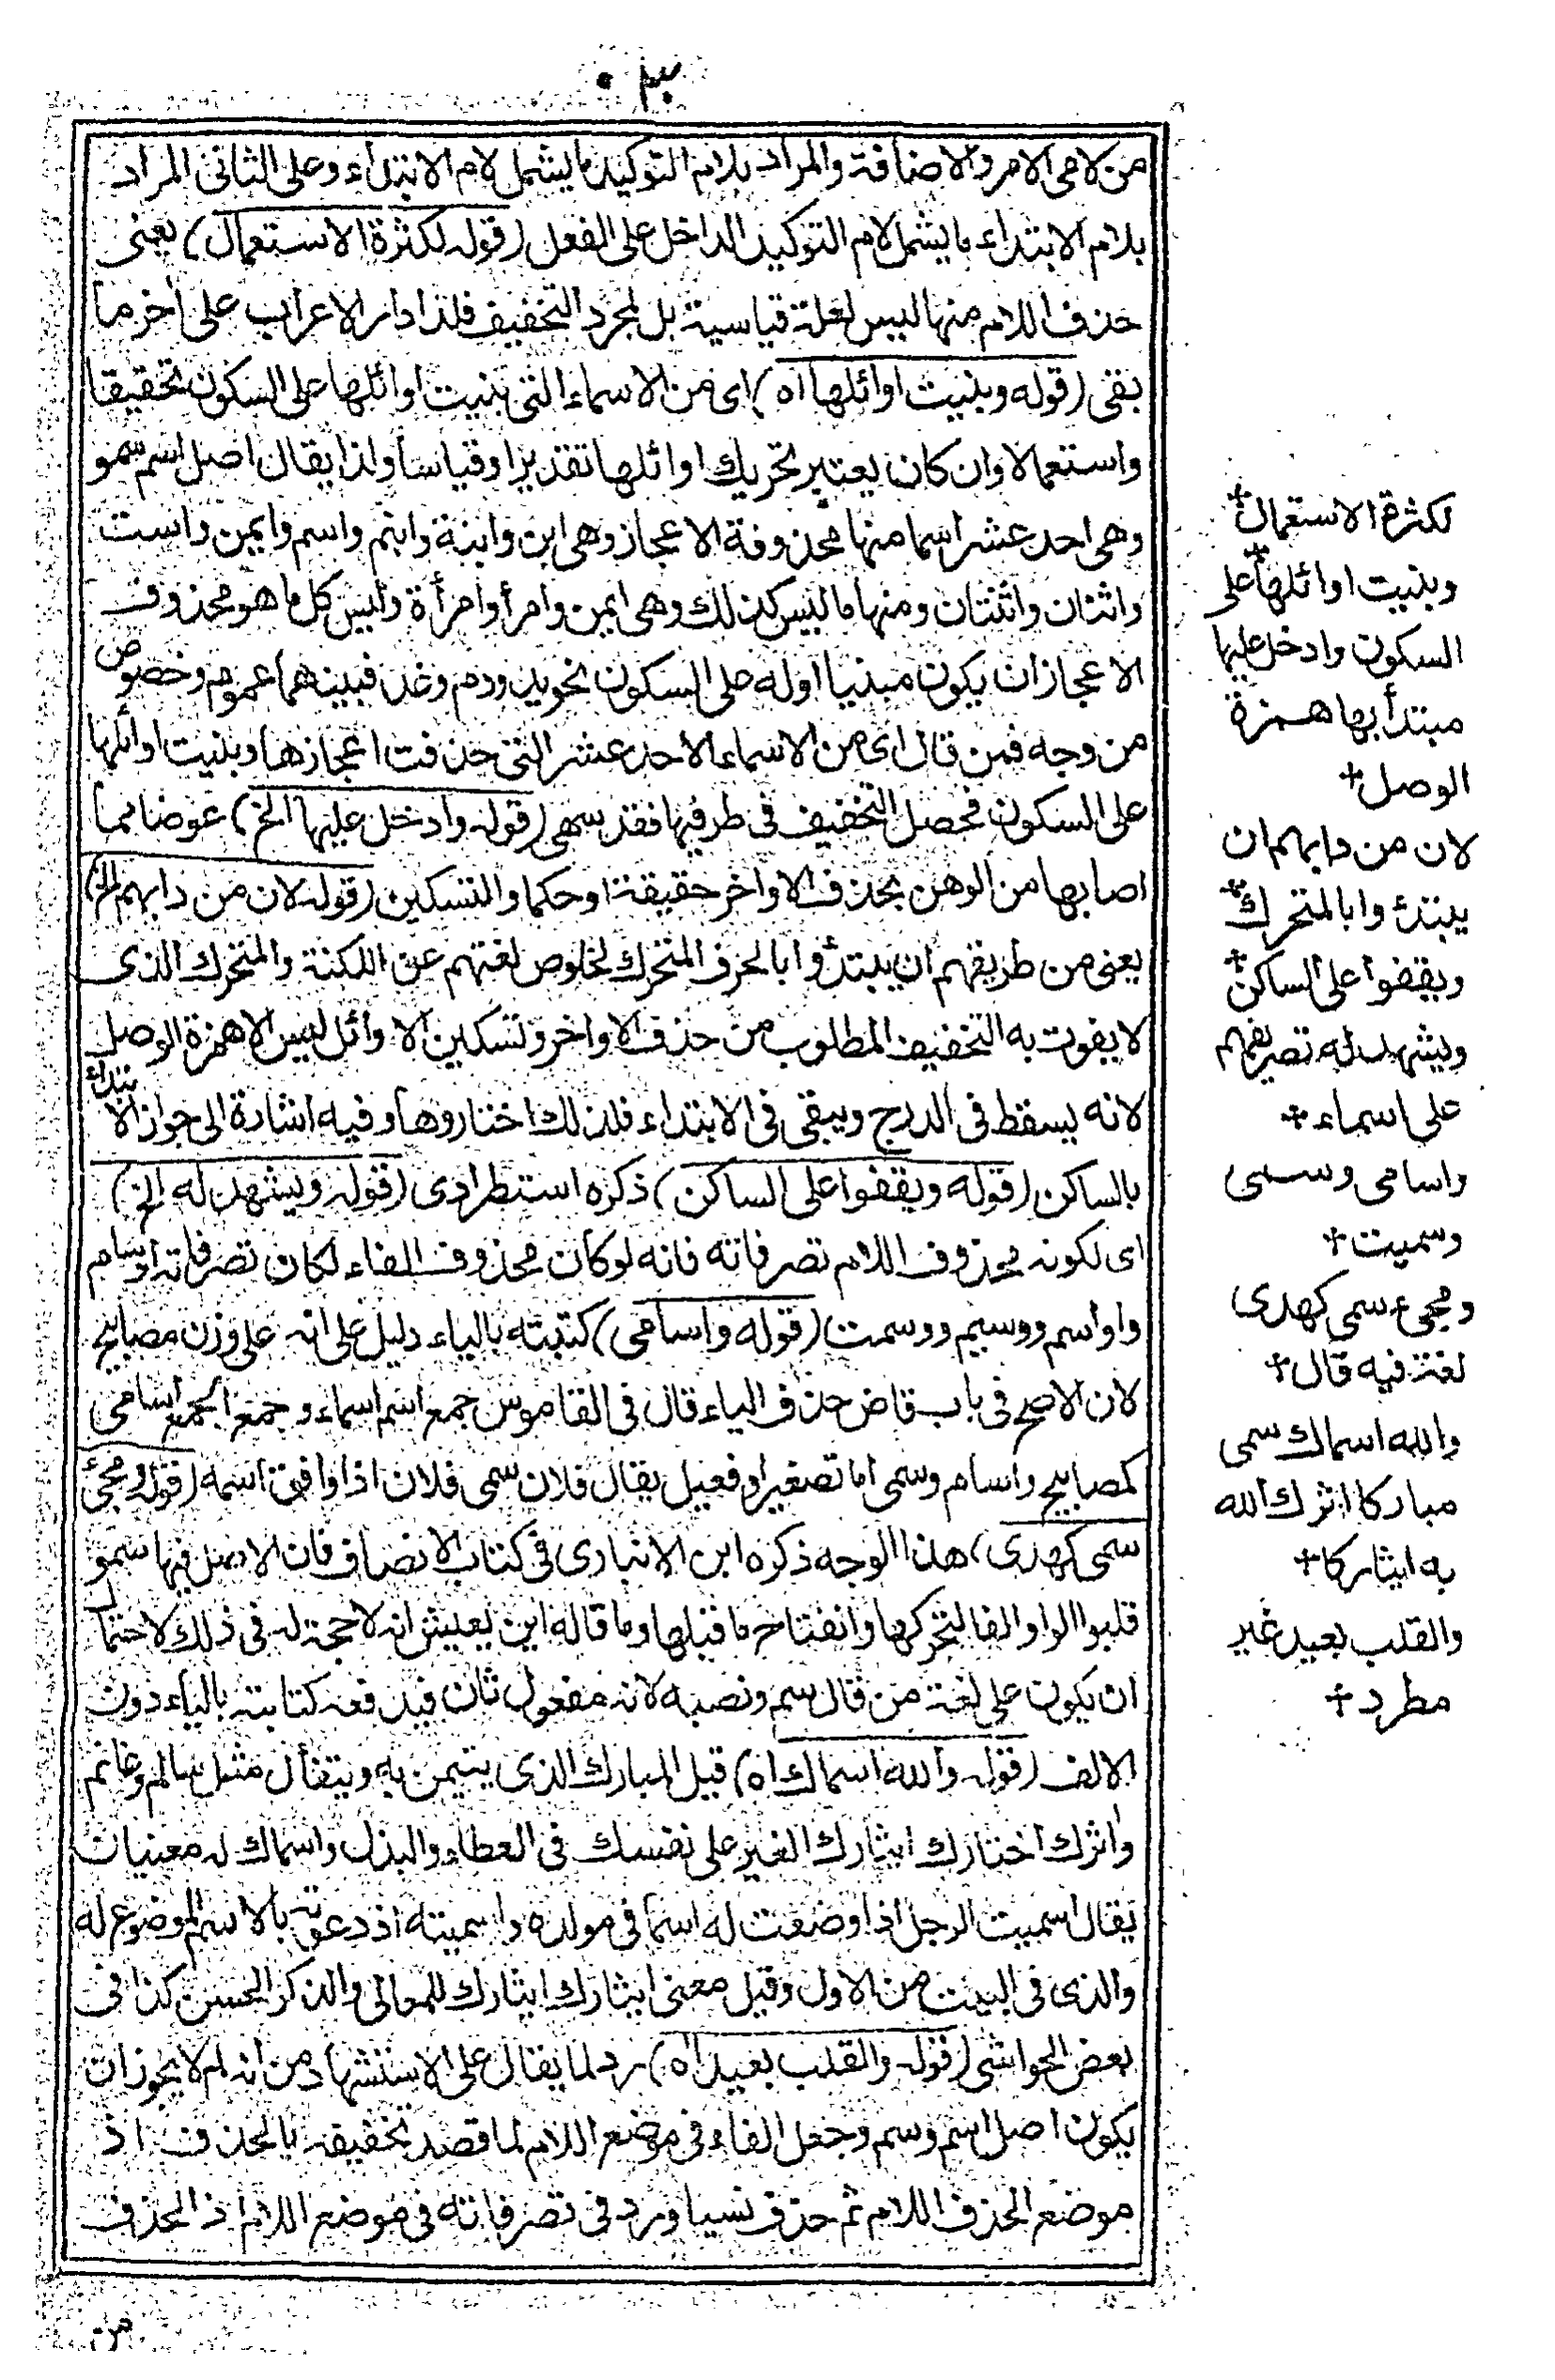 ٣٠
من لامى الامر والاضافة والمراد بلام التوكيد ما يشمل لام الابتداء وعلى الثانى المراد
بلام الابتداء ما يشمل لام التوكيد الداخل على الفعل (قوله لكثرة الاستعمال) يعنى
حذف اللام منها ليس لعلة قياسية بل لمجرد التخفيف فلذا دار الاعراب على أخر ما
بقى (قوله وبنيت اوائلها اه) اى من الاسماء التى بنيت اوائلها على السكون تحقيقا
واستعمالا وان كان يعتبر تحريك اوائلها تقديرا وقياسا ولذا يقال اصل اسم سمو
وهى احد عشر اسما منها محذوفة الاعجاز وهى ابن وابنة وابنم واسم وايمن واست
واثنان واثنتان ومنها ما ليس كذلك وهى ايمن وامرأ وامرأة وليس كل ما هو محذوف
الاعجاز ان يكون مبنيا اوله على السكون نحو يد ودم وغد فبينهما عموم وخصوص
من وجه فمن قال اى من الاسماء الاحد عشر التى حذفت اعجازها وبنيت اوائلها
على السكون فحصل التخفيف فى طرفيها فقد سهى (قوله وادخل عليها الخ) عوضا مما
اصابها من الوهن بحذف الاواخر حقيقة او حكما والتسكين (قوله لان من دابهم الخ)
يعنى من طريقهم ان يبتدؤا بالحرف المتحرك لخلوص لغتهم عن اللكنة والمتحرك الذى
لا يفوت به التخفيف المطلوب من حذف الاواخر وتسكين الاوائل ليس الا همزة الوصل
لانه يسقط فى الدرج ويبقى فى الابتداء فلذلك اختاروها وفيه اشارة الى جواز الابتداء
بالساكن (قوله ويقفوا على الساكن) ذكره استطرادى (قوله ويشهد له الخ)
اى لكونه محذوف اللام تصرفاته فانه لو كان محذوف الفاء لكان تصرفاته اوسام
واواسم ووسيم ووسمت (قوله واسامى) كتبته بالياء دليل على انه على وزن مصابيح
لان الاصح فى باب قاض حذف الياء قال فى القاموس جمع اسم اسماء وجمع الجمع اسامى
كمصابيح واسام وسمى اما تصغير او فعيل يقال فلان سمى فلان اذا وافق اسمه (قوله ومجئ
سمى كهدى) هذا الوجه ذكره ابن الانبارى فى كتاب الانصاف فان الاصل فيها سمو
قلبوا الواو الفا لتحركها وانفتاح ما قبلها وما قاله ابن يعيش انه لا حجة له فى ذلك لاحتمال
ان يكون على لغة من قال سم ونصبه لانه مفعول ثان فيدفعه كتابته بالياء دون
الالف (قوله والله اسماك اه) قيل المبارك الذى يتيمن به ويتفأل مثل سالم وغانم
واثرك اختارك ايثارك الغير على نفسك فى العطاء والبذل واسماك له معنيان
يقال اسميت الرجل اذا وضعت له اسما فى مولده واسميته اذ دعوته بالاسم الموضوع له
والذى فى البيت من الاول وقيل معنى ايثارك ايثارك للمعالى والذكر الحسن كذا فى
بعض الحواشى (قوله والقلب بعيد اه) رد لما يقال على الاستشهاد من انه لم لا يجوز ان
يكون اصل اسم وسم وجعل الفاء فى موضع اللام لما قصد تخفيفه بالحذف اذ
موضع الحذف اللام ثم حذف نسيا ورد فى تصرفاته فى موضع اللام اذ الحذف
من
لكثرة الاستعمال+
وبنيت اوائلها على
السكون وادخل عليها
مبتدأ بها همزة
الوصل+
لان من دابهم ان
يبتدئوا بالمتحرك+
ويقفوا على الساكن+
ويشهد له تصريفهم
على اسماء+
واسامى وسمى
وسميت+
ومجئ سمى كهدى
لغة فيه قال+
والله اسماك سمى
مباركا اثرك الله
به ايثاركا+
والقلب بعيد غير
مطرد+